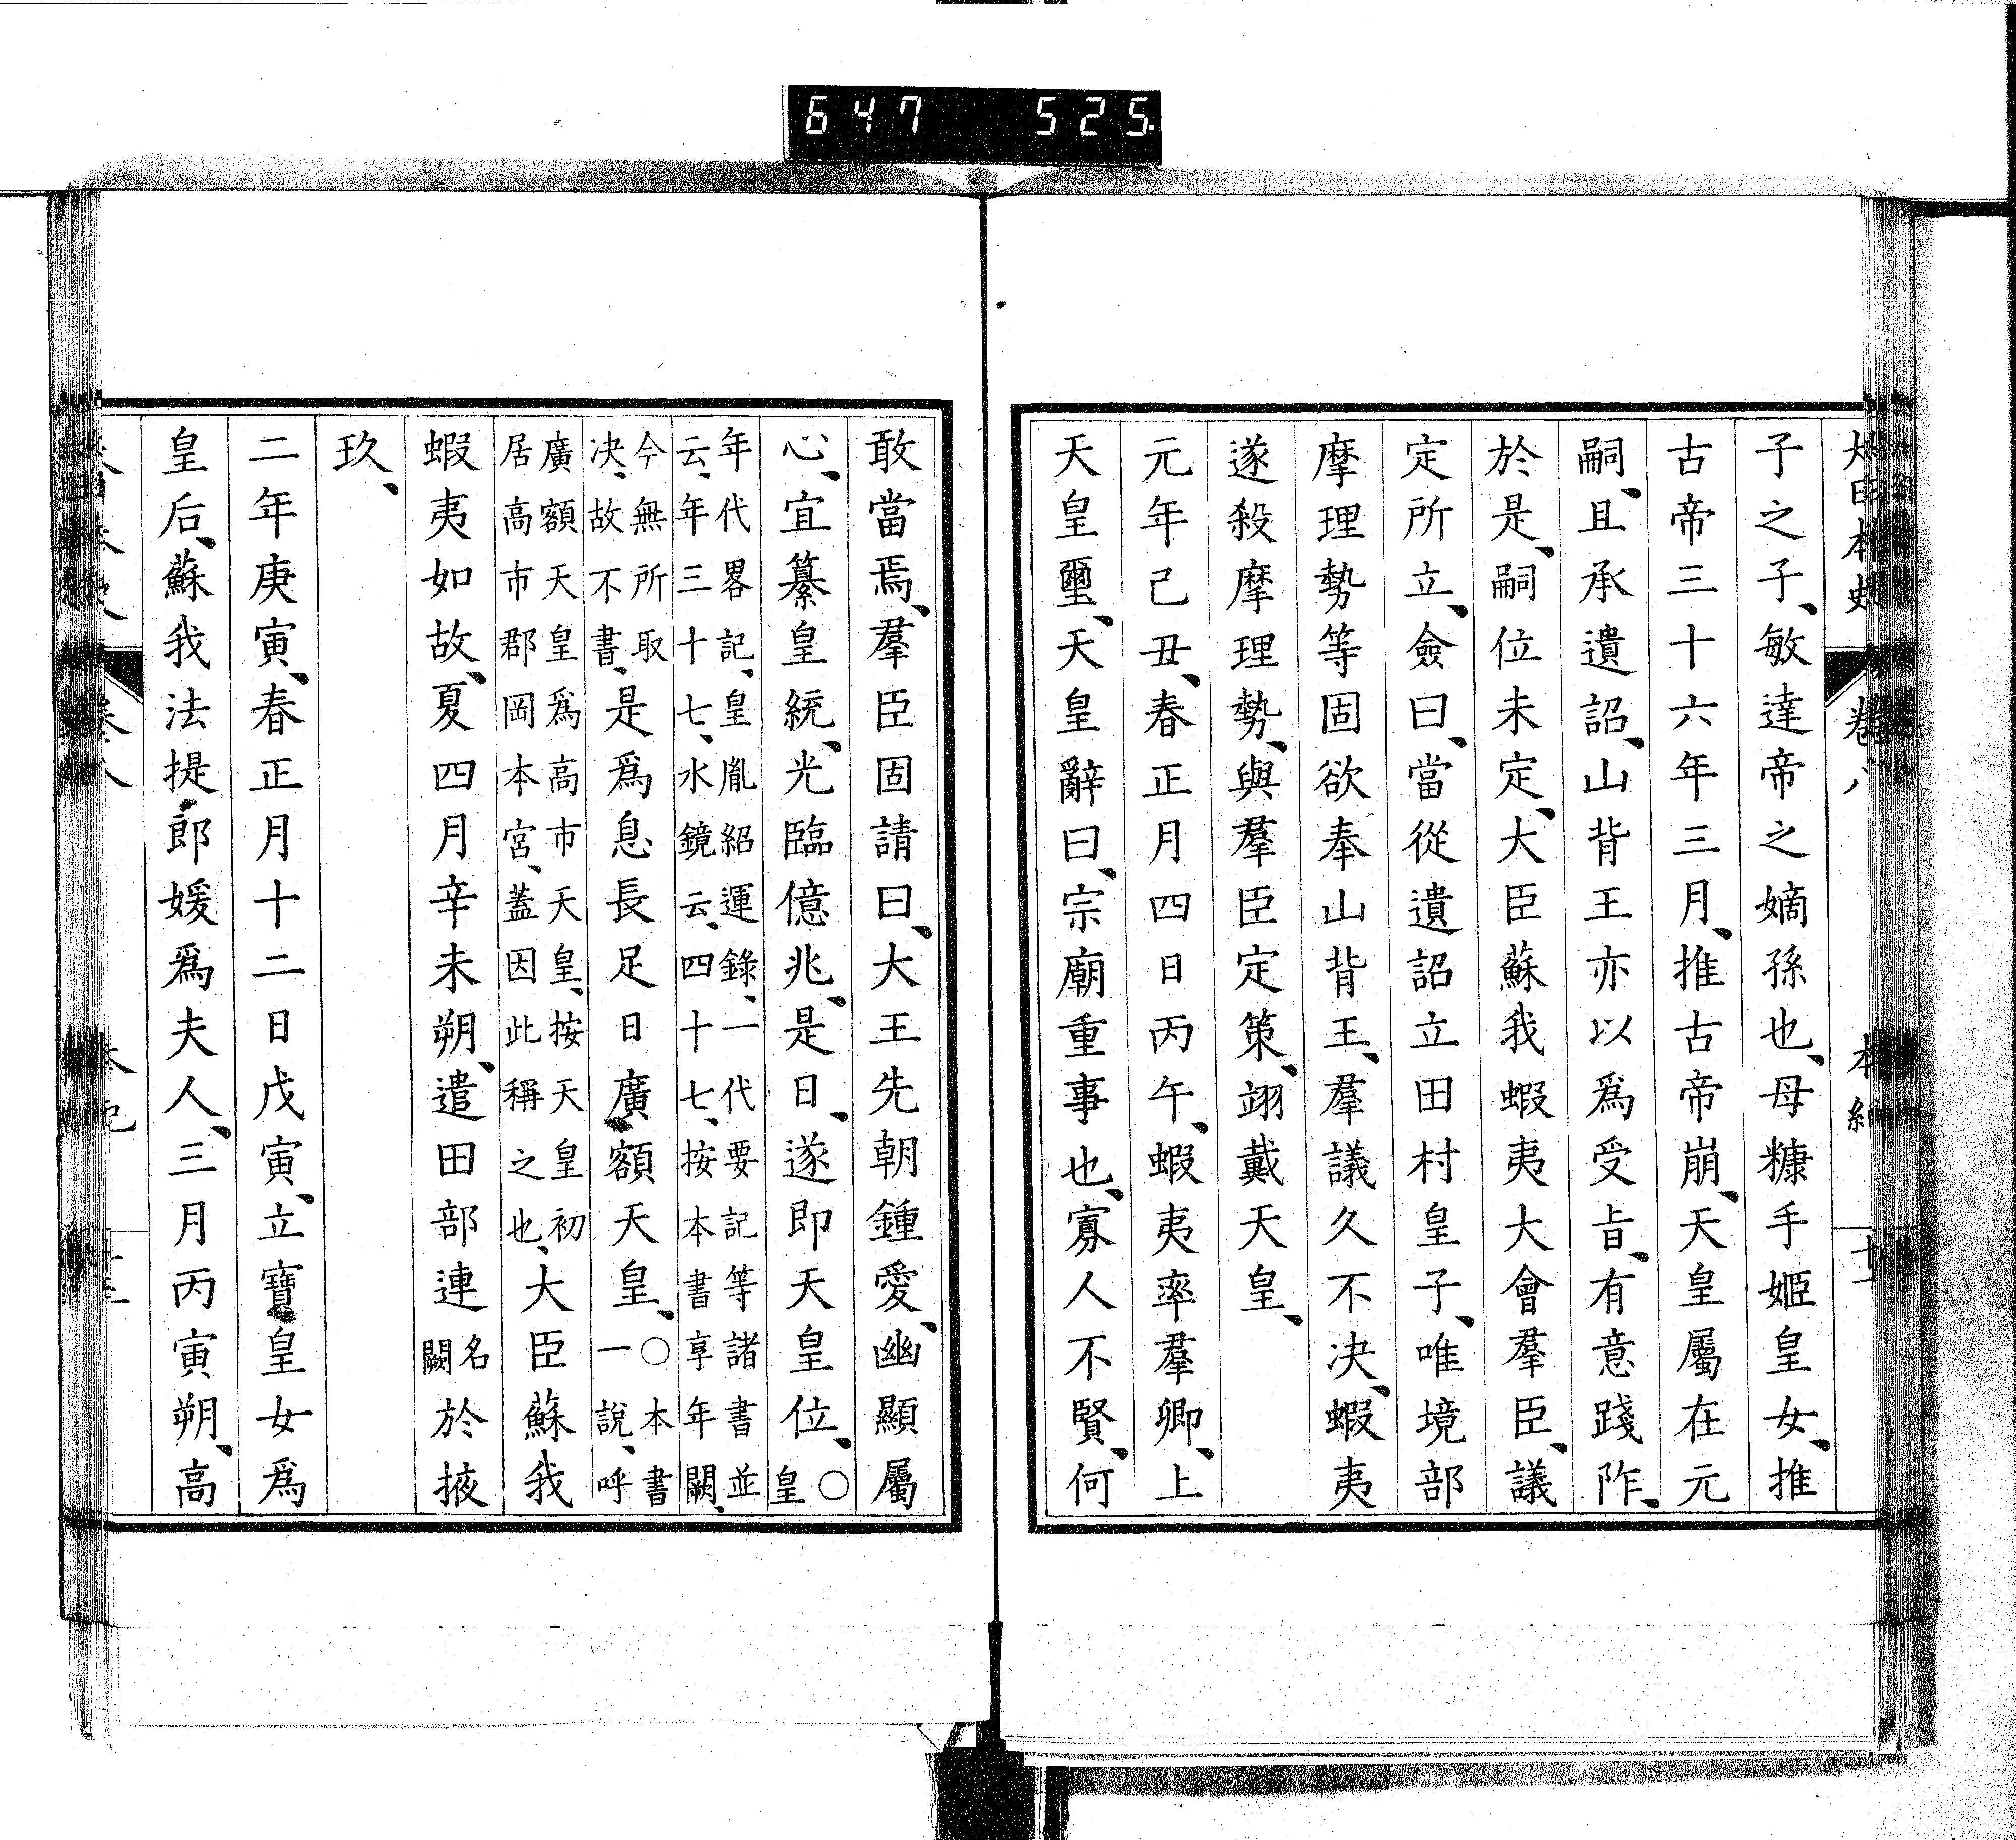 647 525
大日本史 卷八 本紀
子之子、敏達帝之嫡孫也、母糠手姬皇女、推
古帝三十六年三月、推古帝崩、天皇屬在元
嗣、且承遺詔、山背王亦以爲受旨、有意踐阼、
於是、嗣位未定、大臣蘇我蝦夷大會羣臣、議
定所立、僉曰、當從遺詔立田村皇子、唯境部
摩理勢等固欲奉山背王、羣議久不決、蝦夷
遂殺摩理勢、與羣臣定策、翊戴天皇、
元年己丑、春正月四日丙午、蝦夷率羣卿、上
天皇璽、天皇辭曰、宗廟重事也、寡人不賢、何
敢當焉、羣臣固請曰、大王先朝鍾愛、幽顯屬
心、宜纂皇統、光臨億兆、是日、遂即天皇位、○皇
年代畧記、皇胤紹運錄、一代要記等諸書並
云、年三十七、水鏡云、四十七、按本書享年闕、
今無所取
決、故不書、是爲息長足日廣額天皇、○本書
一說、呼
廣額天皇爲高市天皇、按天皇初
居高市郡岡本宮、蓋因此稱之也、大臣蘇我
蝦夷如故、夏四月辛未朔、遣田部連名闕於掖
玖、
二年庚寅、春正月十二日戊寅、立寶皇女爲
皇后、蘇我法提郎媛爲夫人、三月丙寅朔、高